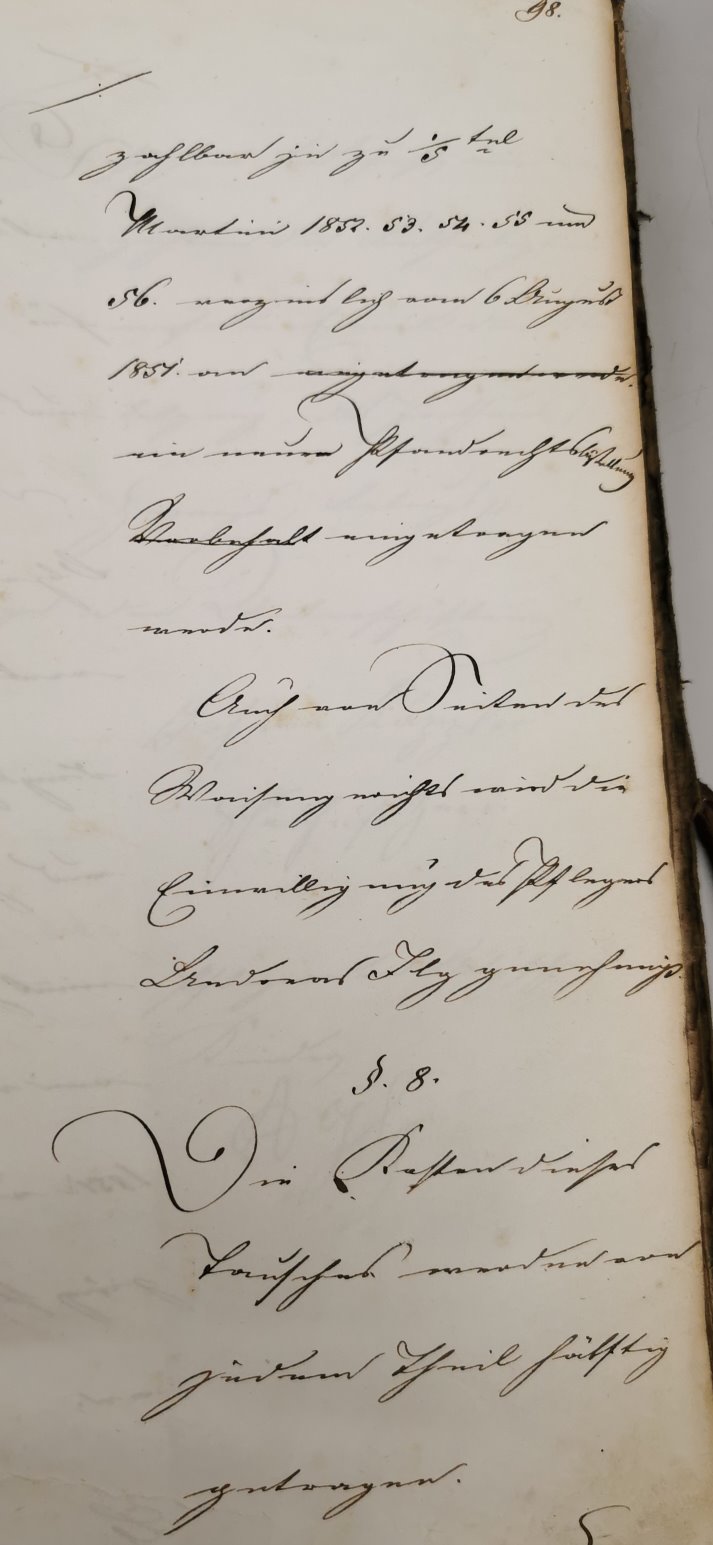 98.
zahlbar je zu 1/5 tel
Martini 1852. 53. 54. 55 und
56. verzinslich vom 6 August
1851. an eingetragen werde.
ein neuer Pfandrechtsbestellung
Vorbehalt eingetragen
werde.
Auch von Seiten des
Waisengerichts wird die
Einwilligung des Pflegers
Andreas Ilg genehmigt.
§. 8.
Die Kosten dieses
Tausches werden von
jedem Theil hälftig
getragen.